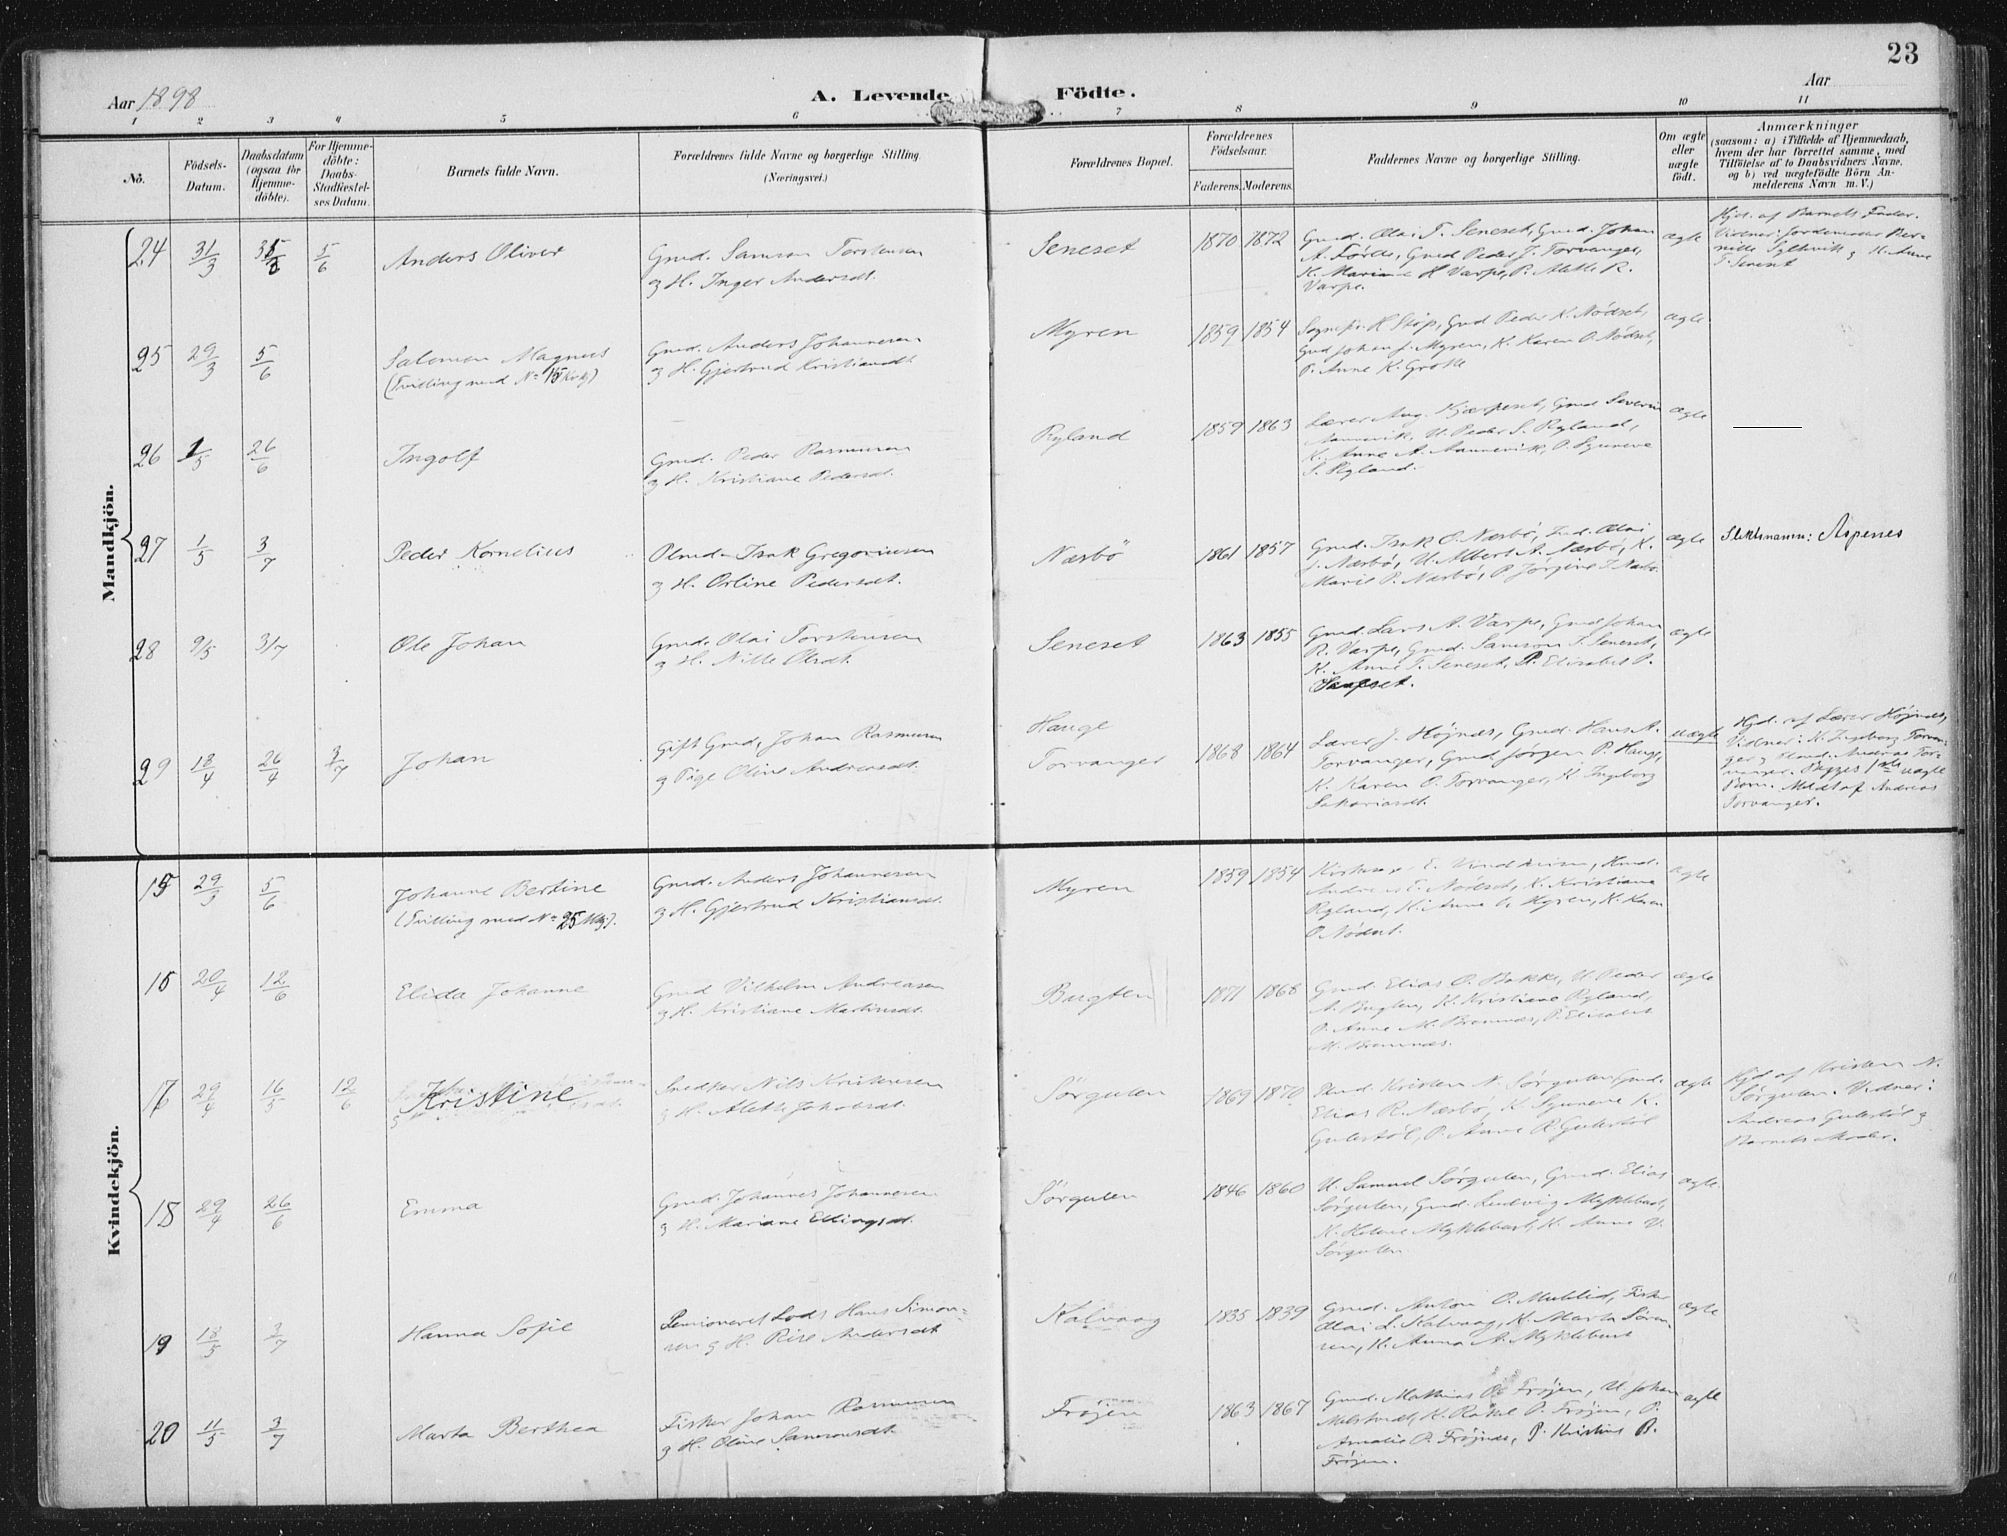 23
Aar 1898
A. Levende Födte.
Aar
1 2 3 4 5 6 7 8 9 10 11
No.
Födsels-Datum.
Daabsdatum (ogsaa for Hjemme-döbte).
For Hjemme-döbte: Daabs-Stadfæstel-ses Datum.
Barnets fulde Navn.
Forældrenes fulde Navne og borgerlige Stilling. (Næringsvei.)
Forældrenes Bopæl.
Forældrenes Födselsaar.
Faderens. Moderens.
Faddernes Navne og borgerlige Stilling.
Om ægte eller uægte födt.
Anmærkninger
(saasom: a) i Tilfælde af Hjemmedaab, hvem der har forrettet samme, med Tilföielse af to Daabsvidners Navne, og b) ved uægtefödte Börn An-melderens Navn m. V.)
Mandkjön.
24 31/3 5/6 Anders Oliver
Gmd. Samson Torstensen
& H. Inger Andersdt.
Seneset 1870 1872
Gmd. Olai T. Seneset, Gmd. Johan
A. Førde, Gmd Peder J. Torvanger,
K. Mariane H Varpe, P. Alette R.
Varpe.
ægte
Hjd. af Barnets Fader.
25 29/3 5/6 Salomon Magnus
(Tvilling med No 15 Kvkj)
Gmd. Anders Johannesen
& H. Gjertrud Kristiansdt
Myren 1859 1854
Gmd Peder K. Nødset,
Gmd Johan J. Myren, K. Karen O. Nødset,
P. Anne K. Grotle
ægte
26 1/5 26/6 Ingolf
Gmd. Peder Rasmussen
& H. Kristiane Pedersdt.
Ryland 1859 1863
Gmd Severin
Aannevik, U. Peder S. Ryland,
K. Anne A. Aannevik, P. Synneve
S. Ryland.
ægte
27 1/5 3/7 Peder Kornelius
Isak Gregoriussen
& H. Orline Pedersdt.
Næsbö 1861 1857
Gmd. Isak O. Næsbö,
J. Næsbö, U. Albert A. Næsbö, K.
Marie P. Næsbö, P Jørgine I Næsbö
ægte
Slektsnamn: Aspenes
28 9/5 3/7 Ole Johan
Gmd. Olai Torstensen
& H. Nille Olsdt.
Seneset 1863 1855
Gmd. Lars A. Varpe, Gmd Johan
R. Varpe, Gmd. Samson T. Seneset,
K. Anne T. Seneset, P. Elisabet P.
ægte
29 18/4 26/4 3/7 Johan
Gift Gmd, Johan Rasmussen
& Pige Oline Andreasdt.
Hauge
Torvanger 1868 1864
Lærer J. Højnæs, Gmd. Hans A.
Torvanger, Gmd. Jørgen P. Hauge,
K. Karen O. Torvanger, K. Ingeborg
Sakariasdt.
uægte
Hjd. af Lærer Højnæs,
Vidner: K. Ingeborg Torvan-
ger & Andreas Tor-
vanger. Begges 1ste uægte
Barn. Meldt af Andreas
Torvanger.
Kvindekjön.
15 29/3 5/6 Johanne Bertine
(Tvilling med No 25 Mkj).
Gmd. Anders Johannesen
& H. Gjertrud Kristiansdt.
Myren 1859 1854
Ryland, K. Anne
Myren, K. Karen
O. Nødset.
ægte
16 20/4 12/6 Elida Johanne
Gmd Vilhelm Andreasen
& H. Kristiane Martinsdt.
Bugten 1871 1868
Gmd. Elias O. Bakke, U. Peder
A. Bugten, K. Kristiane Ryland,
P. Anne M. Bremnæs, P. Elisabet
M. Bremnæs.
ægte
17 29/4 16/5 12/6 Kristine
Snedker Nils Kristensen
& H. Alette Jakobsdt.
Sørgulen 1869 1870
Gmd. Kristen N. Sørgulen, Gmd.
Elias R. Næsbö, K. Synneve K.
Gulestøl, P. Anne R. Gulestøl
ægte
Hjd af Kristen N.
Sørgulen. Vidner:
Andreas Gulestøl &
Barnets Moder.
18 29/4 26/6 Emma
Gmd. Johannes Johannesen
& H. Mariane Ellingsdt.
Sørgulen 1846 1860
U. Samuel Sørgulen, Gmd. Elias
Sørgulen, Gmd. Ludvig Myklebust,
K. Helene Myklebust, K. Anne V.
Sørgulen
ægte
19 18/5 3/7 Hanna Sofie
Pensioneret Lods Hans Simon-
sen & H. Rise Andersdt
Kalvaag 1835 1839
Gmd. Anton O. Fisker
Olai L. Kalvaag, K. Marta Sören-
sen, K. Anna A. Myklebust
ægte
20 11/5 3/7 Marta Berthea
Fisker Johan Rasmussen
& H. Oline Samsonsdt
Frøjen 1863 1867
Gmd. Mathias O. Frøjen, U Johan
K. Rakel P. Frøjen, P.
Amalie O. Frøjnæs, P. Kristine B.
Frøjen.
ægte